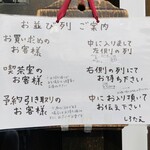 お並び列ご案内
お買い求めの
お客様
中に入りまして
左側の列
喫茶室の
お客様
右側の列にて
お待ち下さい
予約引き取りの
お客様
中にお入り頂いて
お伝え下さい